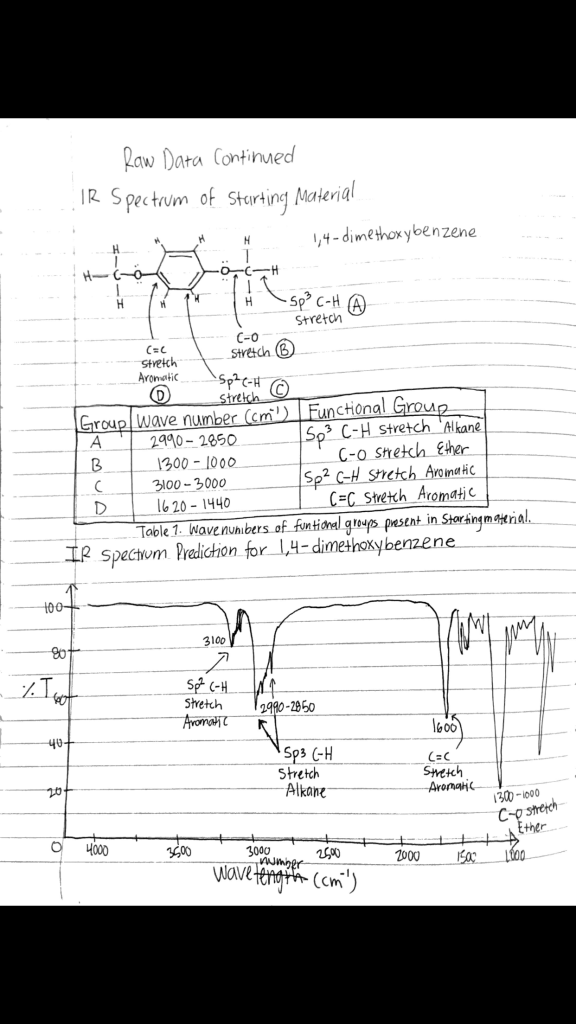 Raw Data Continued
IR Spectrum of Starting Material
1,4-dimethoxybenzene
H H H H
H-C-O O-C-H
H H H H
Sp³ C-H (A)
Stretch
C-O
stretch (B)
C=C
Stretch
Aromatic
(D)
Sp² C-H
stretch (C)
Group Wave number (cm⁻¹) Functional Group
A 2990-2850 Sp³ C-H stretch Alkane
B 1300-1000 C-O stretch Ether
C 3100-3000 Sp² C-H stretch Aromatic
D 1620-1440 C=C stretch Aromatic
Table 1. Wavenumbers of funtional groups present in starting material.
IR spectrum Prediction for 1,4-dimethoxybenzene
100
80
% T 60
40
20
0
3100
Sp² C-H
Stretch
Aromatic
2990-2850
Sp3 C-H
Stretch
Alkane
1600
C=C
Stretch
Aromatic
1300-1000
C-O stretch
Ether
4000 3500 3000 2500 2000 1500 1000
number
wavelength (cm⁻¹)